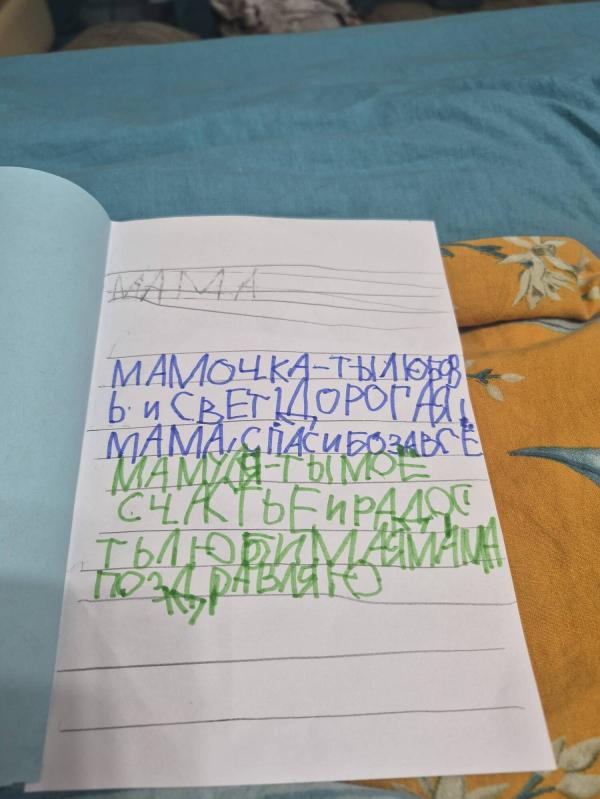 МАМА
МАМОЧКА-ТЫ ЛЮБОВ
Ь И СВЕТ! ДОРОГАЯ
МАМА, СПАСИБО ЗА ВСЁ
МАМУЛЯ-ТЫ МОЁ
СЧАСТЬЕ И РАДОС
ТЬ ЛЮБИМАЯ МАМА
ПОЗДРАВЛЯЮ